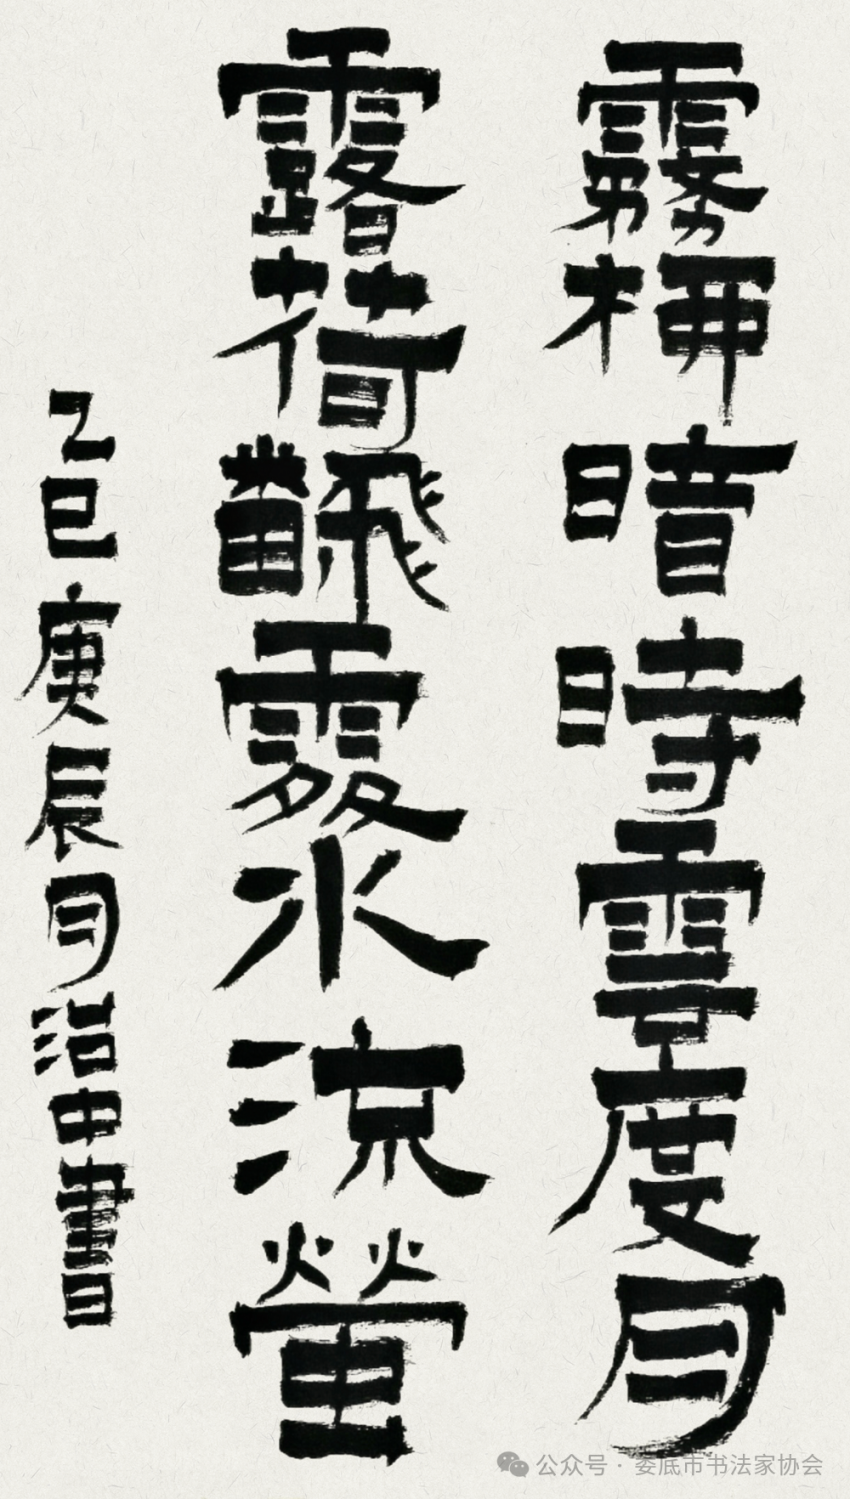 霧桺暗時雲度月
露荷飜處水流螢
乙巳庚辰月治中書
公众号·娄底市书法家协会